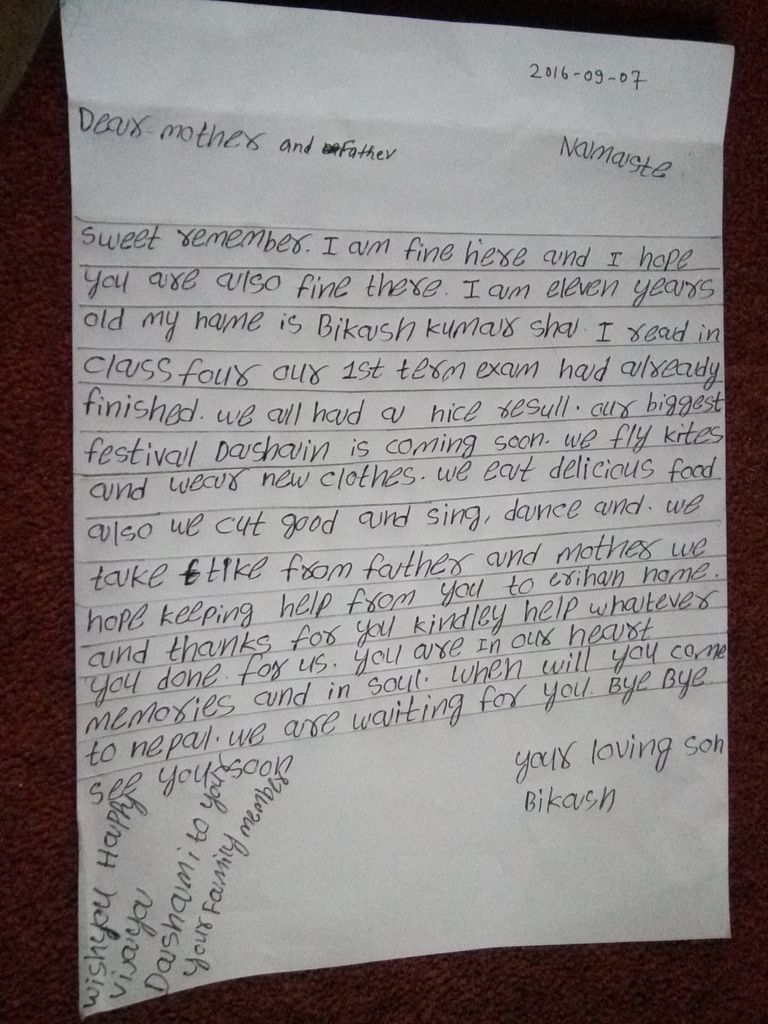 2016-09-07
Dear mother and father
Namaste
sweet remember. I am fine here and I hope
you are also fine there. I am eleven years
old my name is Bikash kumar sha. I read in
class four our 1st term exam had already
finished. we all had a nice resull. our biggest
festival Dashain is coming soon. we fly kites
and wear new clothes. we eat delicious food
also we cut good and sing, dance and. we
take tike from father and mother we
hope keeping help from you to erihan home.
and thanks for you kindley help whatever
you done for us. you are in our heart
memories and in soul. when will you come
to nepal. we are waiting for you. Bye Bye
see you soon
your loving son
Bikash
wish you Happy
vijaya
Dashami to your
your Family member